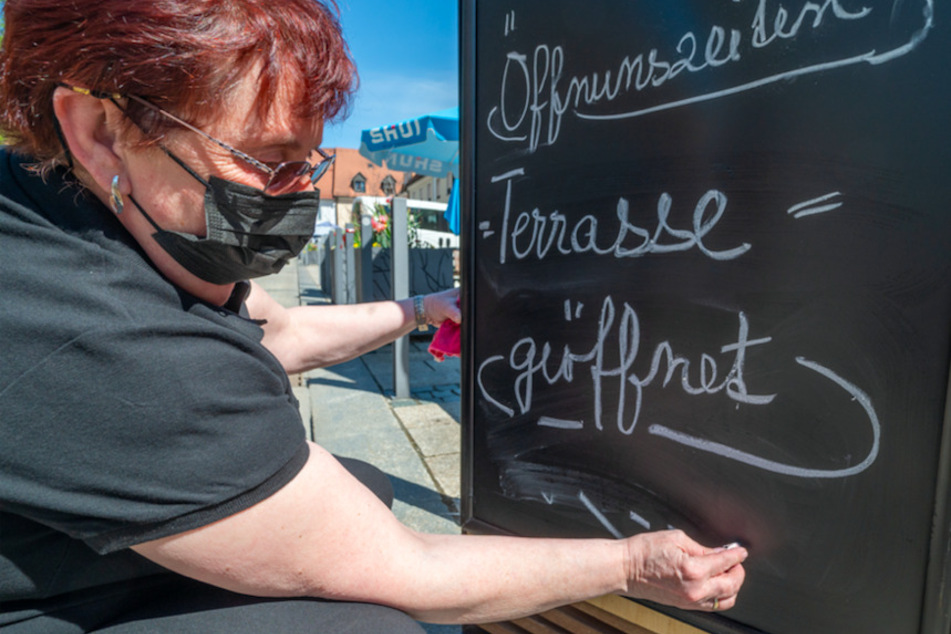 Öffnunszeiten
Terrasse =
geöffnet